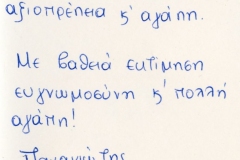 αξιοπρέπεια κ' αγάπη.
Με βαθειά εκτίμηση
ευγνωμοσύνη κ' πολλή
αγάπη!